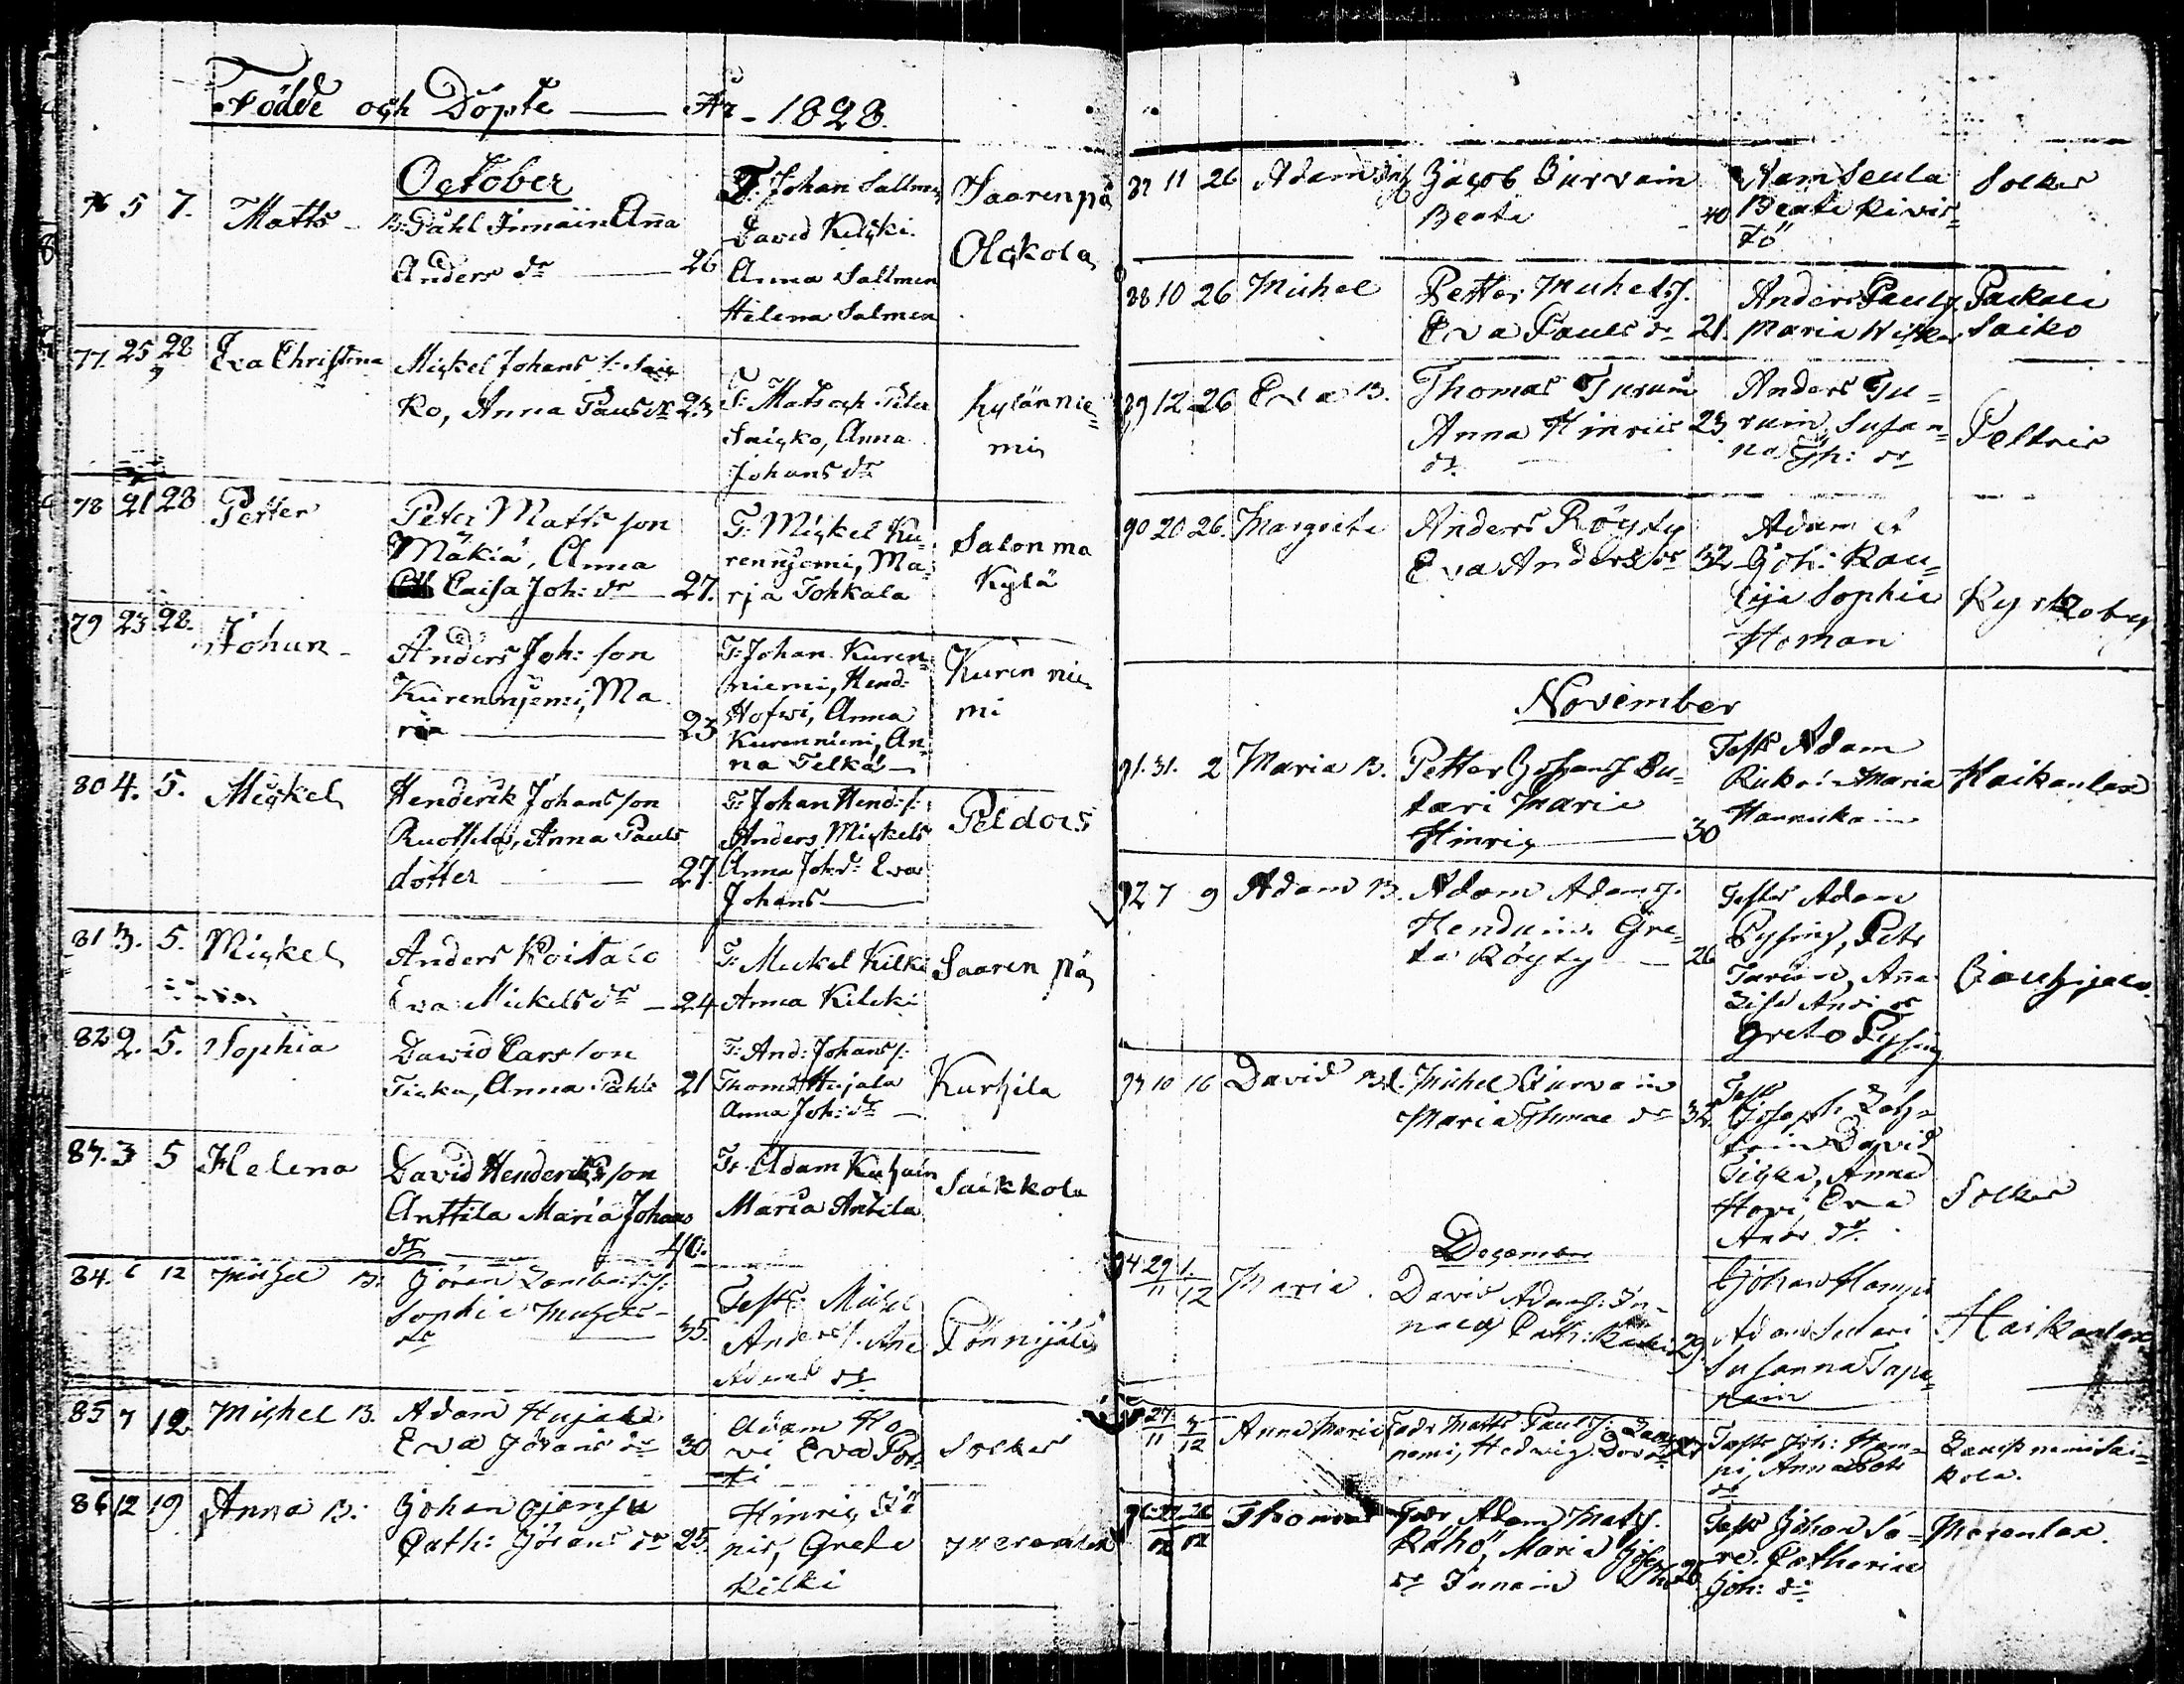 Födde och Döpte — År - 1828.
October
76 5 7. Matts - B. Påhl Innain Anna
Anders dr — 26
T. Johan Sallmen
David Kilski.
Anna Sallmen
Helena Salmen
Saarenpä
Olckola
77. 25 28 Eva Christina
Mickel Johans s: Saic
ko, Anna Pauls dr 23
T: Mats och Peter
Saicko, Anna
Johans dr
Kylännie=
mi
78 21 28 Petter
Peter Matts son
Mäkiä, Anna
Caisa Joh: dr — 27.
T: Mickel Ku=
renniemi, Ma=
rja Tohkala
Salon ma
Kylä
79 23 28. Johan -
Anders Joh: son
Kurenniemi, Ma
ria — 23
T: Johan Kuren=
niemi, Hend:
Hofwi, Anna
Kurenniemi, An=
na Telkä —
Kuren nie
mi
80 4. 5. Mickel
Henderik Johansson
Ruottila, Anna Pauls
dotter — 27.
T: Johan Hend: s:
Anders Mickels
Anna Joh: dr Eva
Johans —
Peldois
81 3. 5. Mickel
Anders Koitalo
Eva Mickels dr — 24
T: Mickel Kilki
Anna Kilcki
Saaren pä
82 2. 5. Sophia
David Carsson
Ticka, Anna Pahls 21
T: And: Johans s:
Thomas Hujala
Anna Joh: dr —
Kurhila
83. 3 5 Helena
David Henderiksson
Anttila Maria Johans
dr — 40.
T: Adam Kuhain
Maria Antila
Saikkola
84. 6 12 Michel B.
Göran Lamberts s:
Sophia Michels-
dr — 35.
Test: Michel
Anders s. Ane
Adams dr
Pönnijälä
85 7 12 Michel B.
Adam Hujala
Eva Jörans dr 30
Adam Ho
vi Eva Pot
ti
Solkis
86 12 19 Anna B:
Johan
Cath: Görans dr 25.
Hinric Iö
nis, Greta
Kilki
87 11 26 Adam
Jacob Turvain
Beata - 40
Adam Seula
Beata Kivis=
tö
Solkis
88 10 26 Michel
Petter Michels s.
Eva Pauls dr 21.
Anders Pauls s.
Maria
Packali
Saiko
89 12 26 Eva B.
Thomas Turuin
Anna Hinrics 23
dr.
Anders Tu=
ruin, Susan=
na Joh: dr
Peltois
90 20 26. Margreta
Anders Röysty
Eva Anders dr 32
Adam et
Joh: Rau=
tija Sophia
Homan
Kyrkoby
November
91. 31. 2 Maria B.
Petter Johans s Su=
tari Maria
Hinric — 30
Test. Adam
Maria
Hannukain
Haikanlax
92 7 9 Adam B.
Adam Adams s.
Henduin Gre=
ta Röysty — 26
Testes Adam
Pysing, Petr
Turuin, Ana
Lisa Andrs dr
Greta Pysing
93 10 16 David
Michel Turvain
Maria Thomae dr 32
Test.
Joseph
David
Ticka, Anna
Hovi, Eva
Andr. dr.
Solkis
December
94 29/11 1./12 Maria.
David Adams s: In-
nain Cath: 29.
Johan Hampi
Adam Sutari
Susanna Tapa=
nain
Haikanlax
27/11 /12 Anna Maria
Fadr Matts Pauls s:
nemi, Hedwig Dav. dr
Test Joh: Ham=
pi, Anna
dr
niemi Sai=
kola.
96. Thomas
Fadr. Adam Mats s.
Räihä, Maria
dr Innain 26
Test Johan Sa=
re. Catharina
Joh: dr
Merenlax.